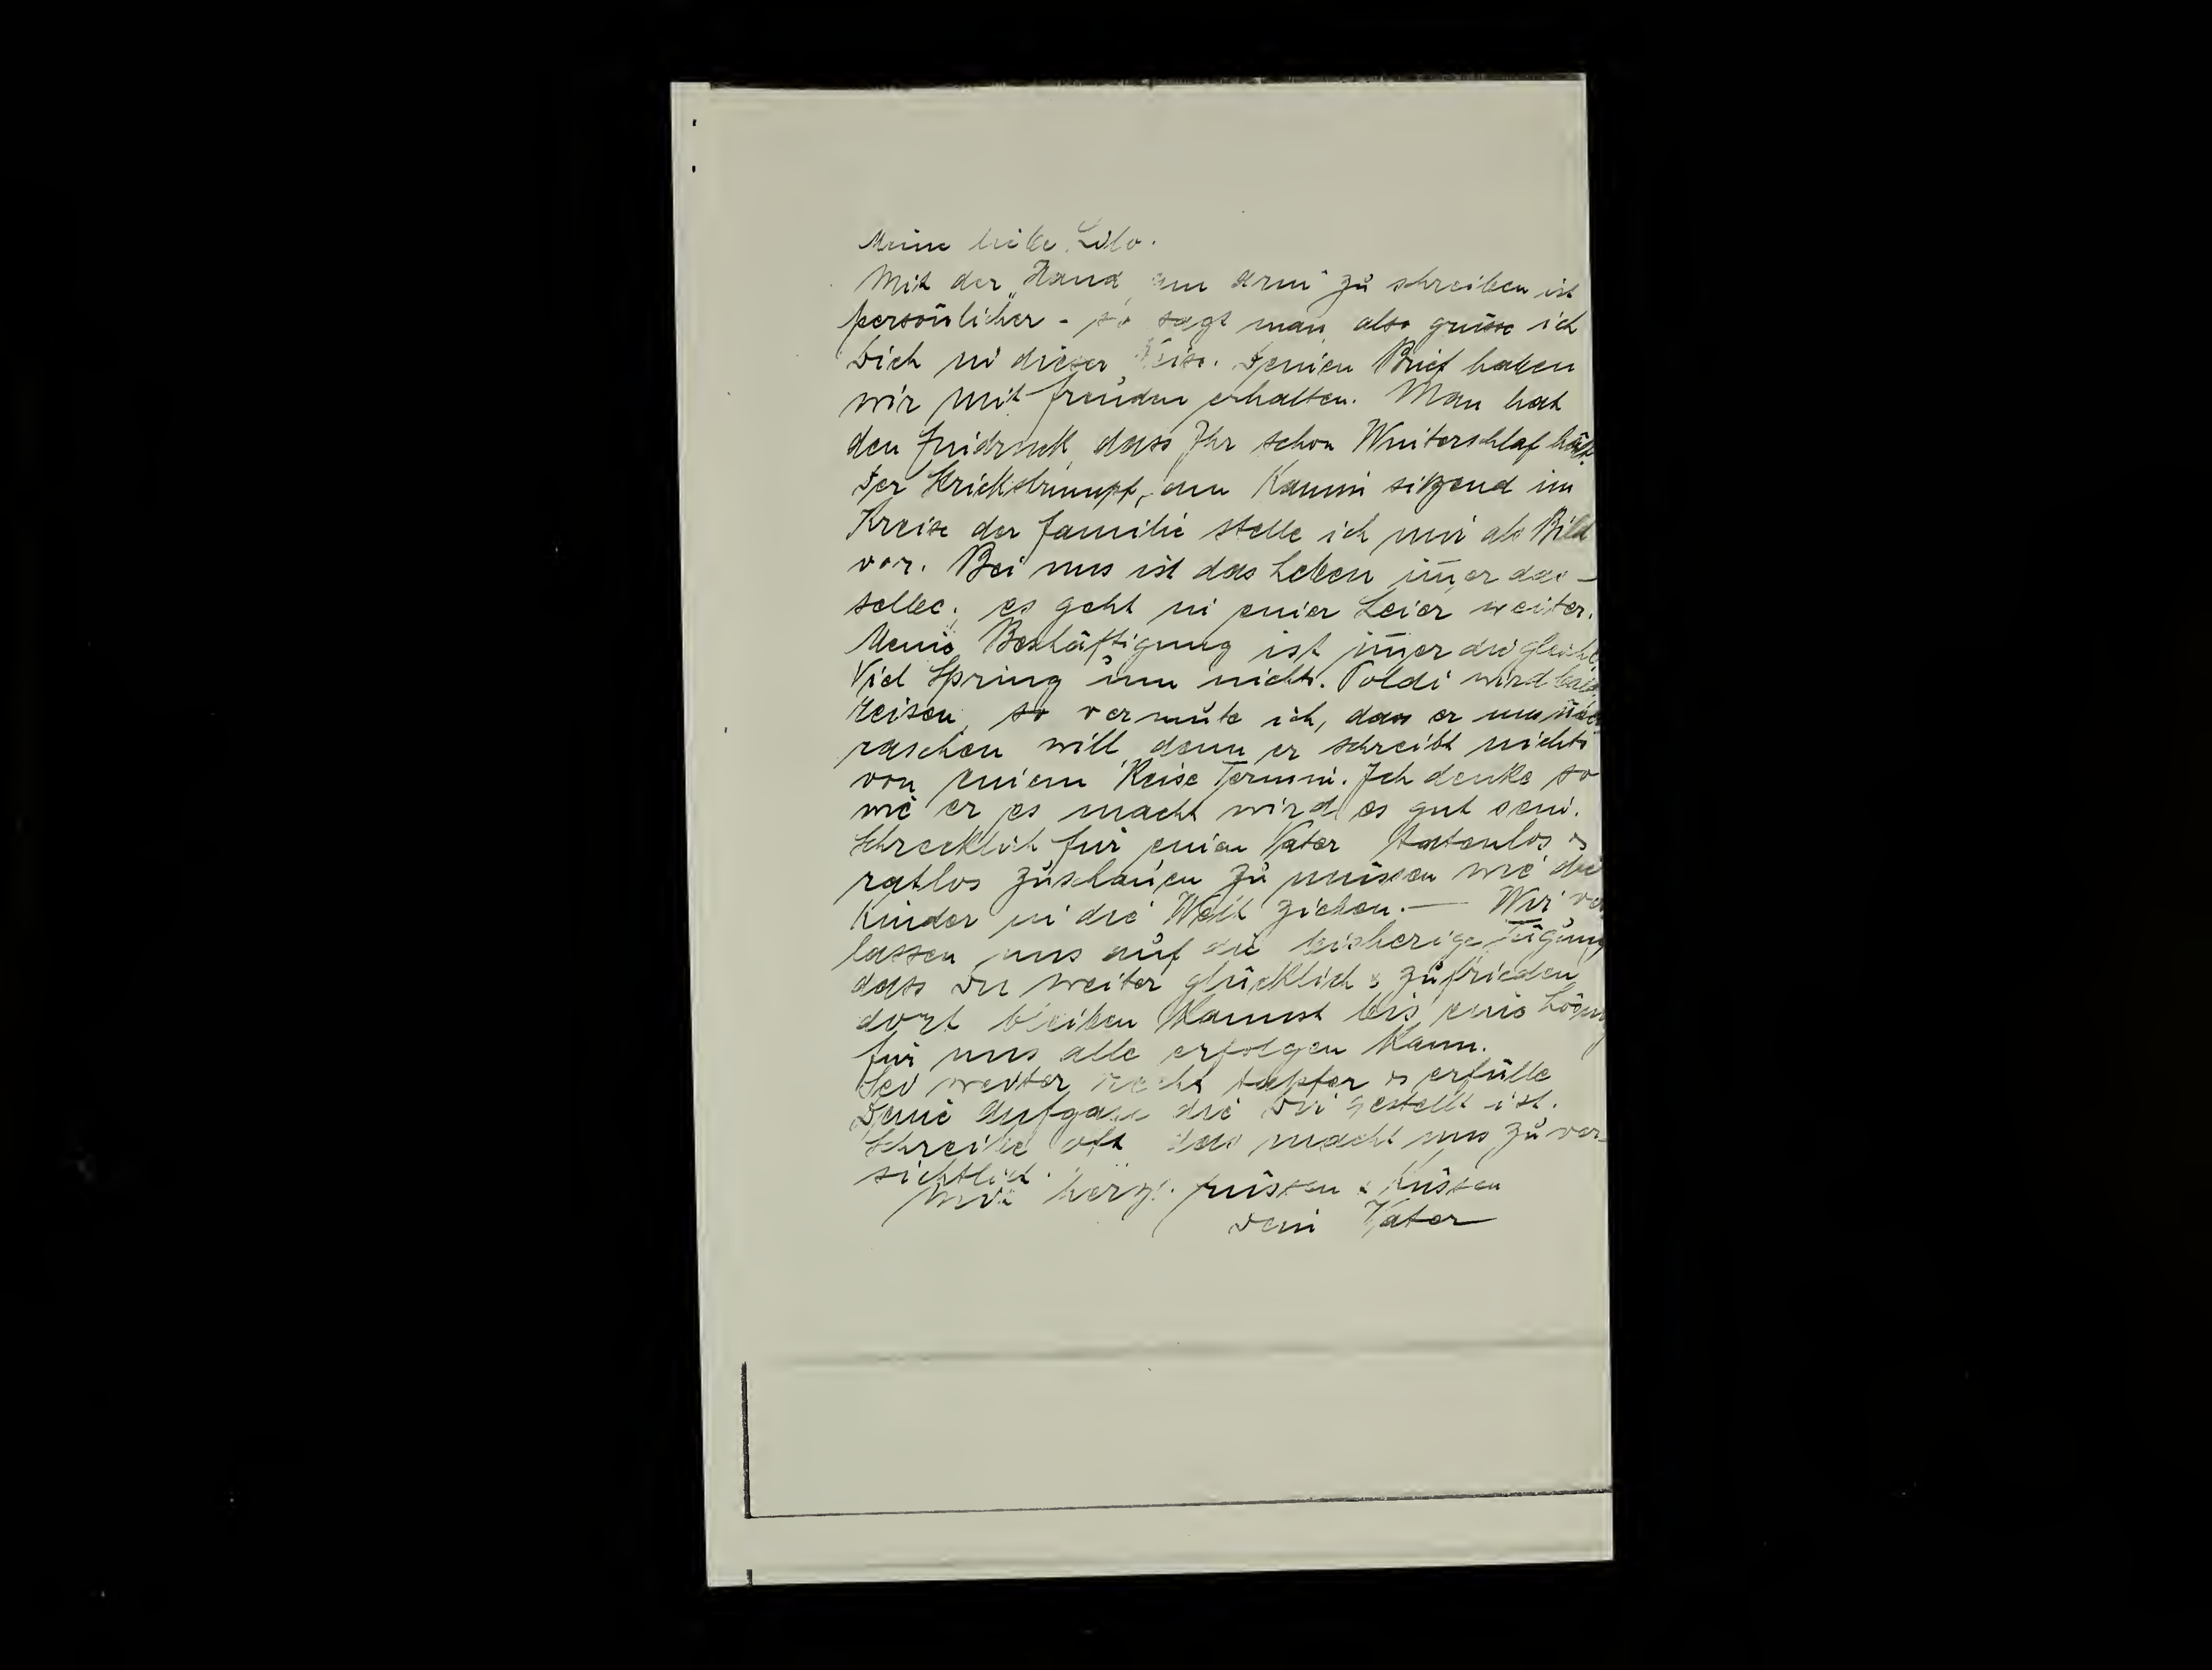 Meine liebe Lilo.
Mit der „Hand am Arm" zu schreiben ist
persönlicher - so sagt man, also grüsse ich
Dich in dieser Weise. Deinen Brief haben
wir mit Freuden erhalten. Man hat
den Eindruck, dass Ihr schon Winterschlaf hält.
Der Strickstrumpf, am Kamin sitzend im
Kreise der Familie stelle ich mir als Bild
vor. Bei uns ist das Leben im̅er das-
selbe; es geht in einer Leier weiter.
Meine Beschäftigung ist im̅er die gleiche
Viel Sprung nichts. Poldi wird bald
reisen, so vermute ich, dass er uns über
raschen will, denn er schreibt nichts
von einem Reise Termin. Ich denke so
wie er es macht wird es gut sein.
Schrecklich für einen Vater tatenlos &
ratlos zuschauen zu müssen wie die
Kinder in die Welt ziehen. — Wir ver
lassen uns auf die bisherige Fügung
dass Du weiter glücklich & zufrieden
dort bleiben kannst bis eine Lösung
für uns alle erfolgen kann.
Sei weiter recht tapfer & erfülle
Deine Aufgabe die Dir gestellt ist.
Schreibe oft das macht uns zuver-
sichtlich.
herzl. Grüssen & Küssen
Dein Vater